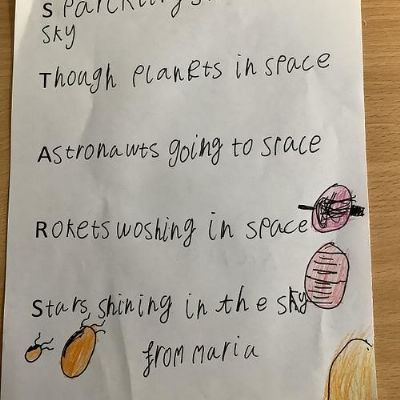 SParckling
sky
Though Planets in space
Astronawts going to space
Rokets woshing in space
Stars, shining in the sky
from maria